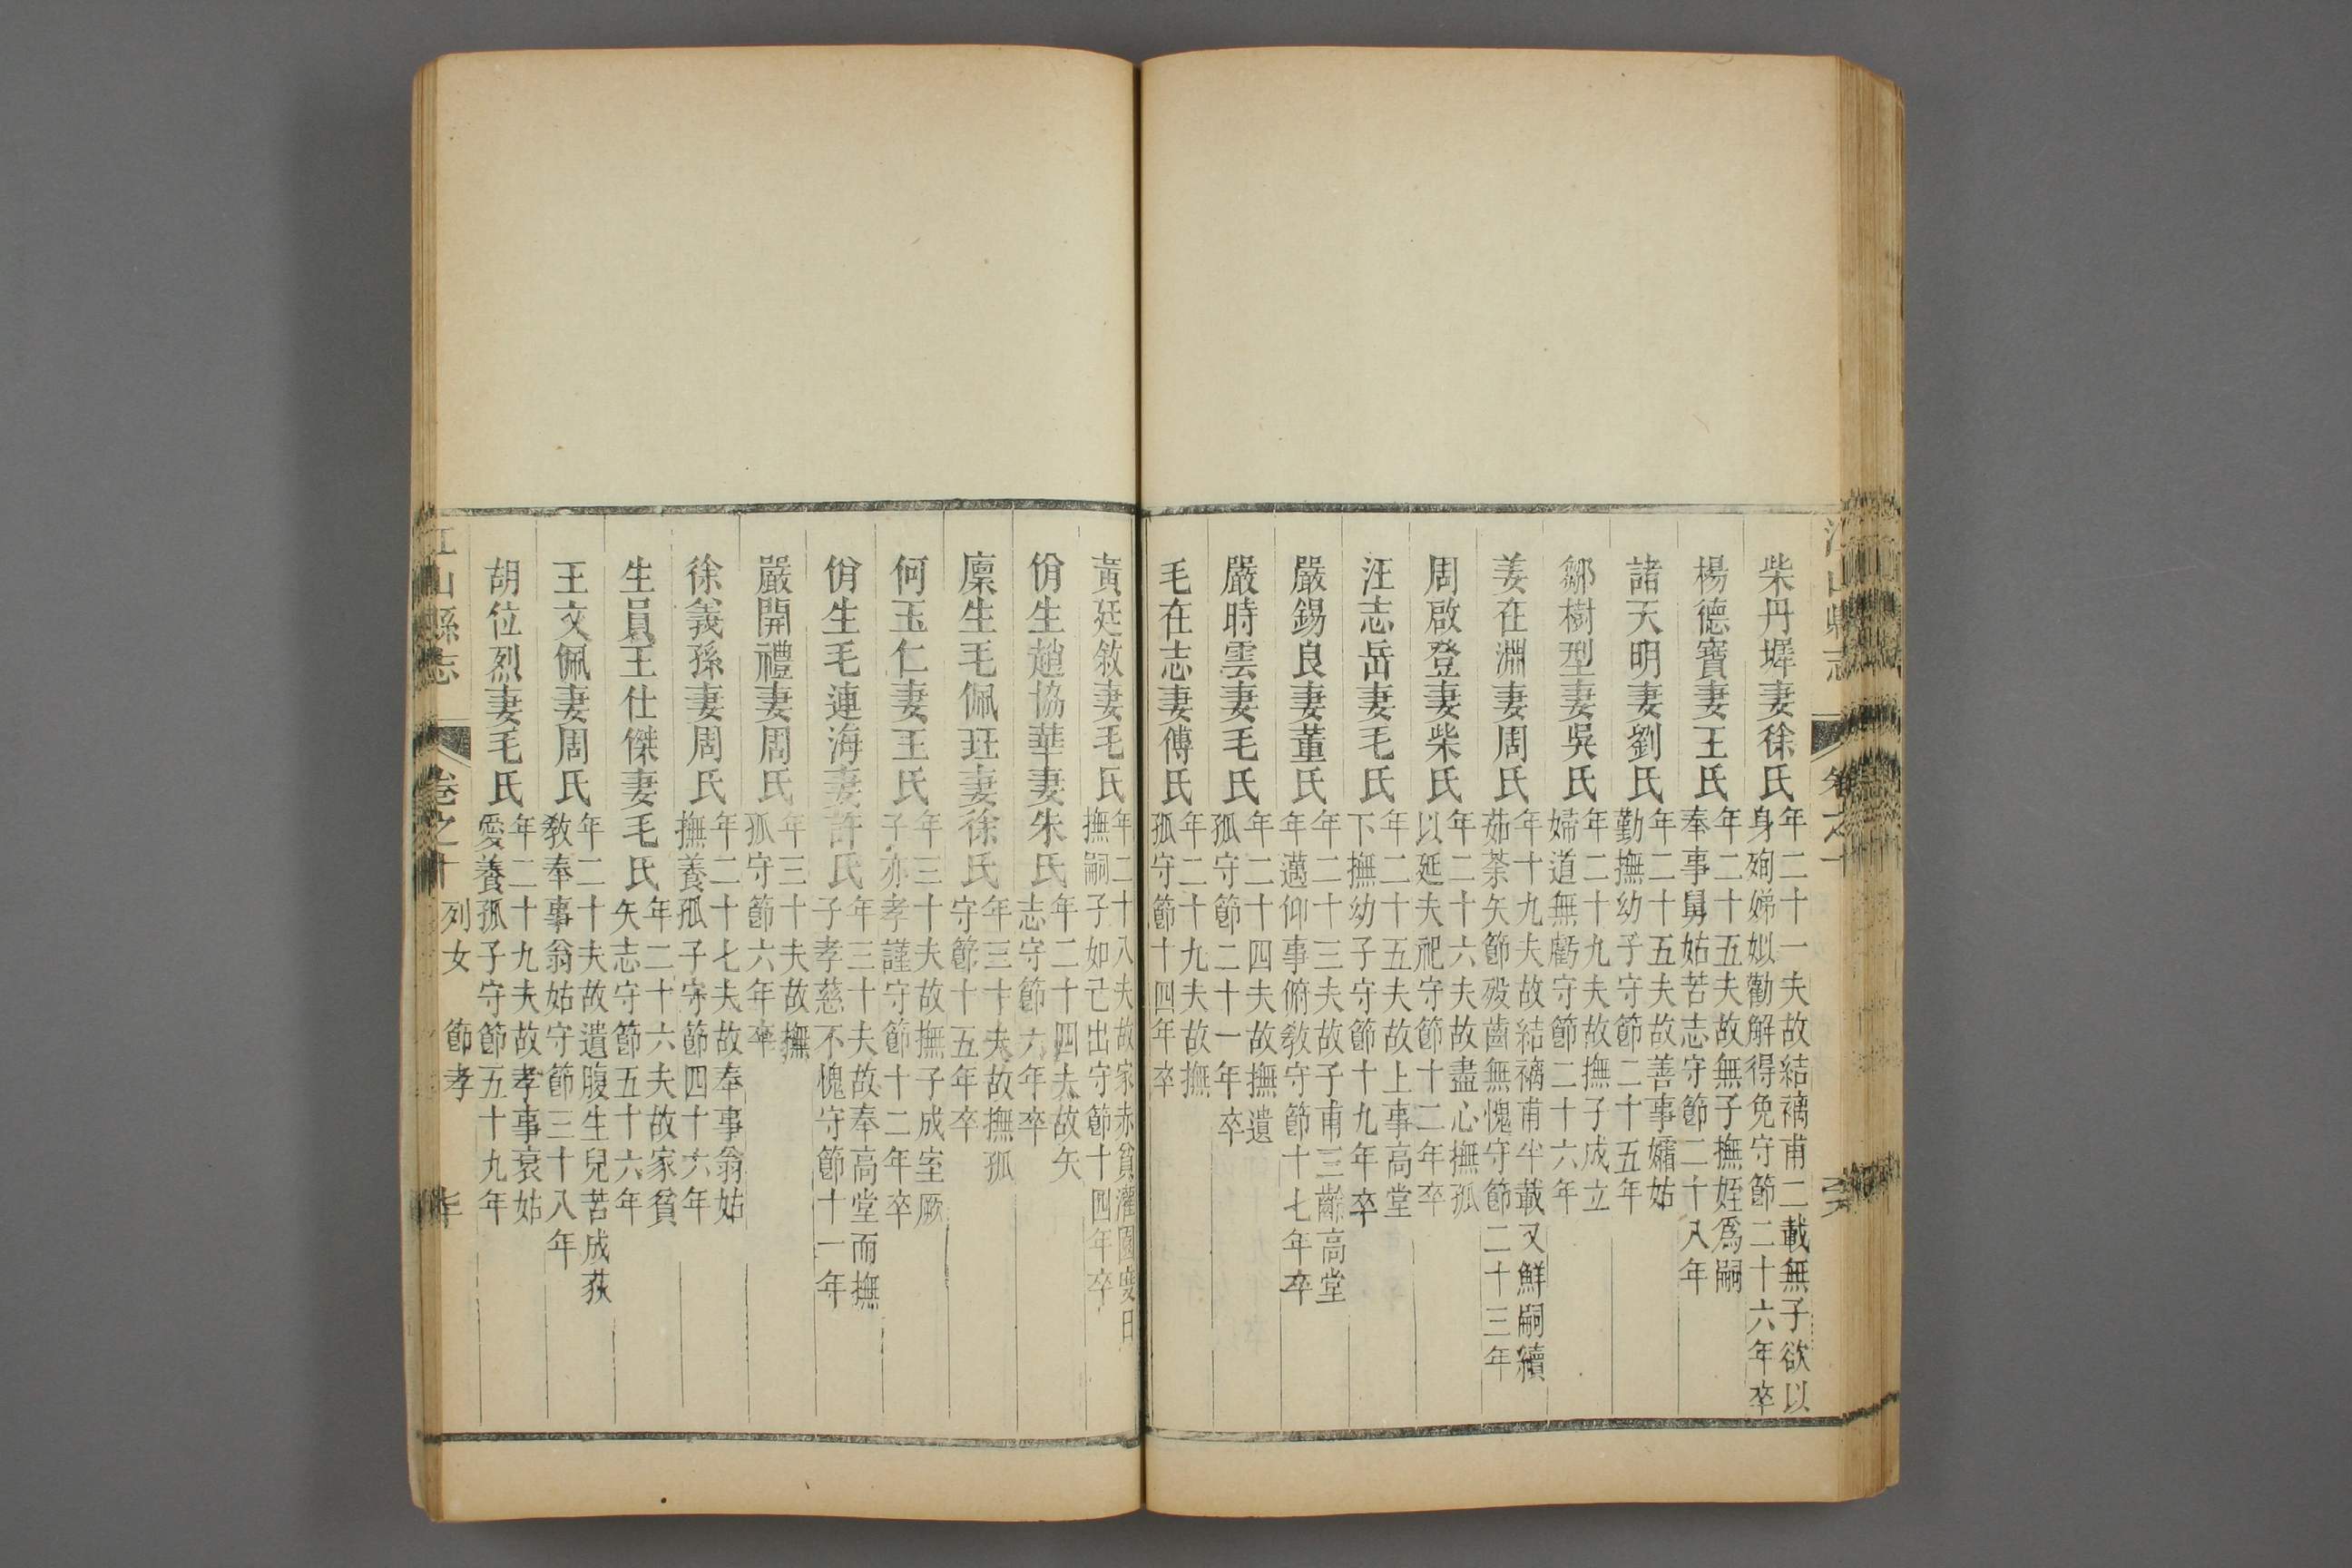 柴丹墀妻徐氏年二十一夫故結褵甫二載無子欲以
身殉娣姒勸解得免守節二十六年卒
楊德寶妻王氏年二十五夫故無子撫姪爲嗣
奉事舅姑苦志守節二十八年
諸天明妻劉氏年二十五夫故善事孀姑
勤撫幼子守節二十五年
鄒樹型妻吳氏年二十九夫故撫子成立
婦道無虧守節二十六年
姜在淵妻周氏年十九夫故結褵甫半載又鮮嗣續
茹荼矢節殁齒無愧守節二十三年
周啟登妻柴氏年二十六夫故盡心撫孤
以延夫祀守節十二年卒
汪志岳妻毛氏年二十五夫故上事高堂
下撫幼子守節十九年卒
嚴錫良妻董氏年二十三夫故子甫三齡高堂
年邁仰事俯敎守節十七年卒
嚴時雲妻毛氏年二十四夫故撫遺
孤守節二十一年卒
毛在志妻傅氏年二十九夫故撫
孤守節十四年卒
黃廷敘妻毛氏年二十八夫故家赤貧灌園度日
撫嗣子如己出守節十四年卒
佾生趙協華妻朱氏年二十四夫故矢
志守節六年卒
廩生毛佩玨妻徐氏年三十夫故撫孤
守節十五年卒
何玉仁妻王氏年三十夫故撫子成室厥
子亦孝謹守節十二年卒
佾生毛連海妻許氏年三十夫故奉高堂而撫
子孝慈不愧守節十一年
嚴開禮妻周氏年三十夫故撫
孤守節六年卒
徐義孫妻周氏年二十七夫故奉事翁姑
撫養孤子守節四十六年
生員王仕傑妻毛氏年二十六夫故家貧
矢志守節五十六年
王文佩妻周氏年二十夫故遺腹生兒苦成荻
敎奉事翁姑守節三十八年
胡位烈妻毛氏年二十九夫故孝事衰姑
愛養孤子守節五十九年
江山縣志 卷之十 列女 節孝